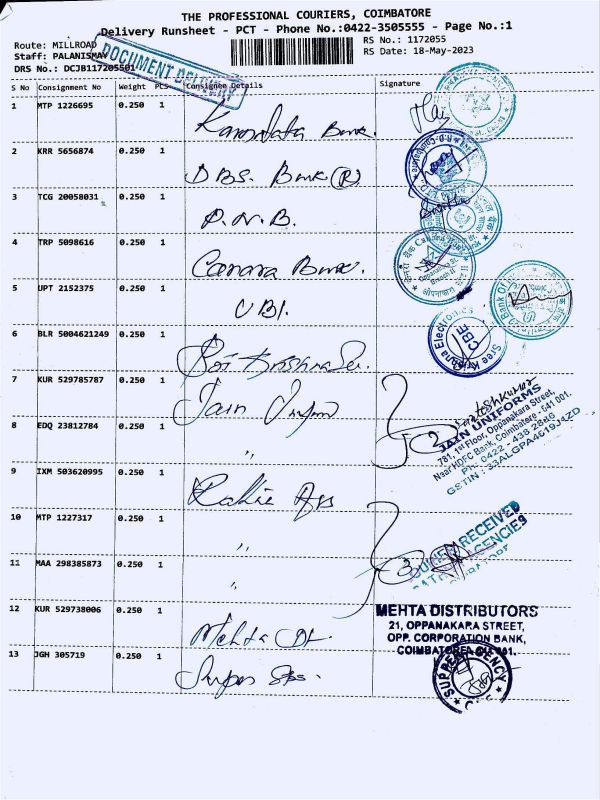 THE PROFESSIONAL COURIERS, COIMBATORE
Delivery Runsheet - PCT - Phone No.:0422-3505555 - Page No.:1
Route: MILLROAD
RS No.: 1172055
Staff: PALANISMAY
RS Date: 18-May-2023
DRS No.: DCJB117205501
DOCUMENT DELIVERY
S No Consignment No Weight PCS Consignee Details Signature
1 MTP 1226695 0.250 1 Karnataka Bank.
2 KRR 5656874 0.250 1 DBS. Bank (R)
3 TCG 20058031 0.250 1 P.N.B.
4 TRP 5098616 0.250 1 Canara Bank.
5 UPT 2152375 0.250 1 UBI.
6 BLR 5004621249 0.250 1
Sree Krishna Electronics
CBE
7 KUR 529785787 0.250 1 Jain
8 EDQ 23812784 0.250 1 "
2
Santoshkumar
JAIN UNIFORMS
781, 1st Floor, Oppanakara Street,
Near HDFC Bank, Coimbatore - 641 001.
Ph: 0422 - 438 2849
GSTIN : 33ALGPA4619J4ZD
9 IXM 503620995 0.250 1
10 MTP 1227317 0.250 1 "
11 MAA 298385873 0.250 1 "
3
RECEIVED
AGENCIES
12 KUR 529738006 0.250 1 Mehta
MEHTA DISTRIBUTORS
21, OPPANAKARA STREET,
OPP. CORPORATION BANK,
COIMBATORE-641 001.
13 JGH 305719 0.250 1
SUPREM AGENCY